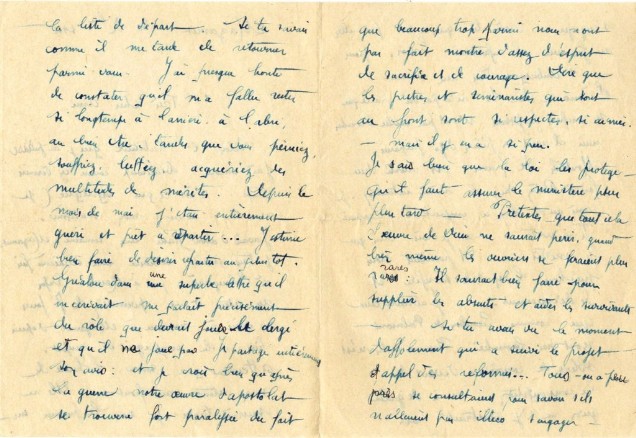 la liste de départ ... Si tu savais
comme il me tarde de retourner
parmi vous. J'ai presque honte
de constater qu'il m'a fallu rester
si longtemps à l'arrière, à l'abri,
au bien être, tandis que vous peiniez,
souffriez, luttiez, acquériez des
multitudes de mérites. Depuis le
mois de mai j'étais entièrement
guéri et prêt à repartir ... J'estime
bien faire de désirer partir au plus tôt.
dans une superbe lettre qu'il
m'écrivait me parlait précisément
du rôle que devrait jouer le clergé
et qu'il ne joue pas. Je partage entièrement
son avis : et je crois bien qu'après
la guerre notre œuvre d'apostolat
se trouvera fort paralysée du fait
que beaucoup trop parmi nous n'ont
pas fait montre d'assez d'esprit
de sacrifice et de courage. Dire que
les prêtres et séminaristes qui sont
au front sont si respectés, si aimés.
— mais il y en a si peu.
Je sais bien que la loi les protège —
qu'il faut assurer le ministère pour
plus tard — Prétextes que tout cela
L'œuvre de Dieu ne saurait périr, quand
bien même les ouvriers se feraient plus
rares : Il saurait bien faire pour
suppléer les absents et aider les survivants
— Si tu avais vu le moment
d'affolement qui a suivi le projet
d'appel des réformés ... Tous — ou à peu
près — se consultaient pour savoir s'ils
n'allaient pas illico s'engager —